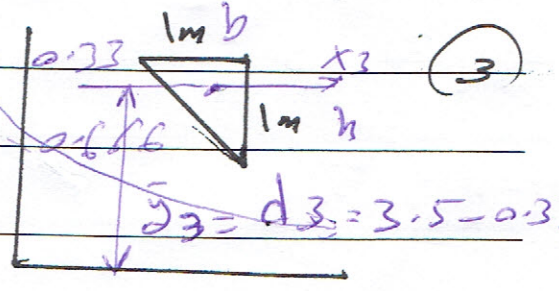 1m b
0.33 x3 3
1m h
0.666
ȳ3 = d3 = 3.5-0.3